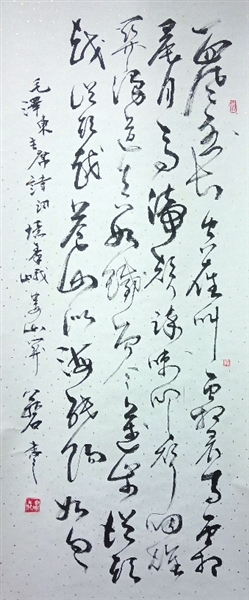 西風烈長空雁叫霜晨月霜
晨月馬蹄聲碎喇叭聲咽雄
關漫道真如鐵而今邁步從頭
越從頭越蒼山如海殘陽如血
毛澤東主席詩詞憶秦娥婁山關